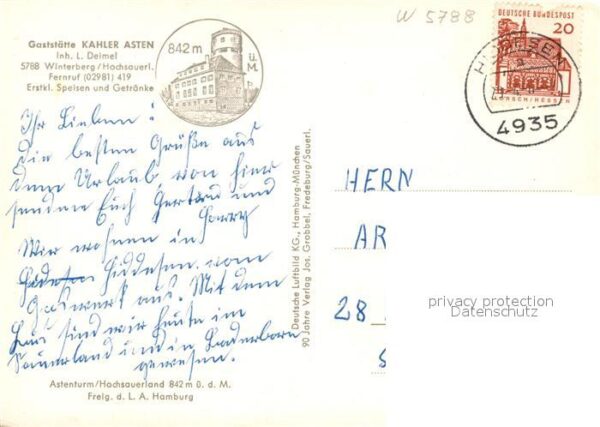 W 5788
Gaststätte KAHLER ASTEN
Inh. L. Deimel
5788 Winterberg / Hochsauerl.
Fernruf (02981) 419
Erstkl. Speisen und Getränke
842 m
ü. M.
DEUTSCHE BUNDESPOST
20
LORSCH/HESSEN
HIDDESEN
4935
Ihr Lieben!
Die besten Grüße aus
dem Urlaub von hier
senden Euch Gertrud und
Harry
Wir wohnen in
Hiddesen vom
Gaswerk aus. Mit dem
Bus sind wir heute im
Sauerland und in Paderborn
gewesen.
Astenturm/Hochsauerland 842 m ü. d. M.
Freig. d. L. A. Hamburg
Deutsche Luftbild KG., Hamburg-München
90 Jahre Verlag Jos. Grobbel, Fredeburg/Sauerl.
HERN
AR
28
privacy protection
Datenschutz